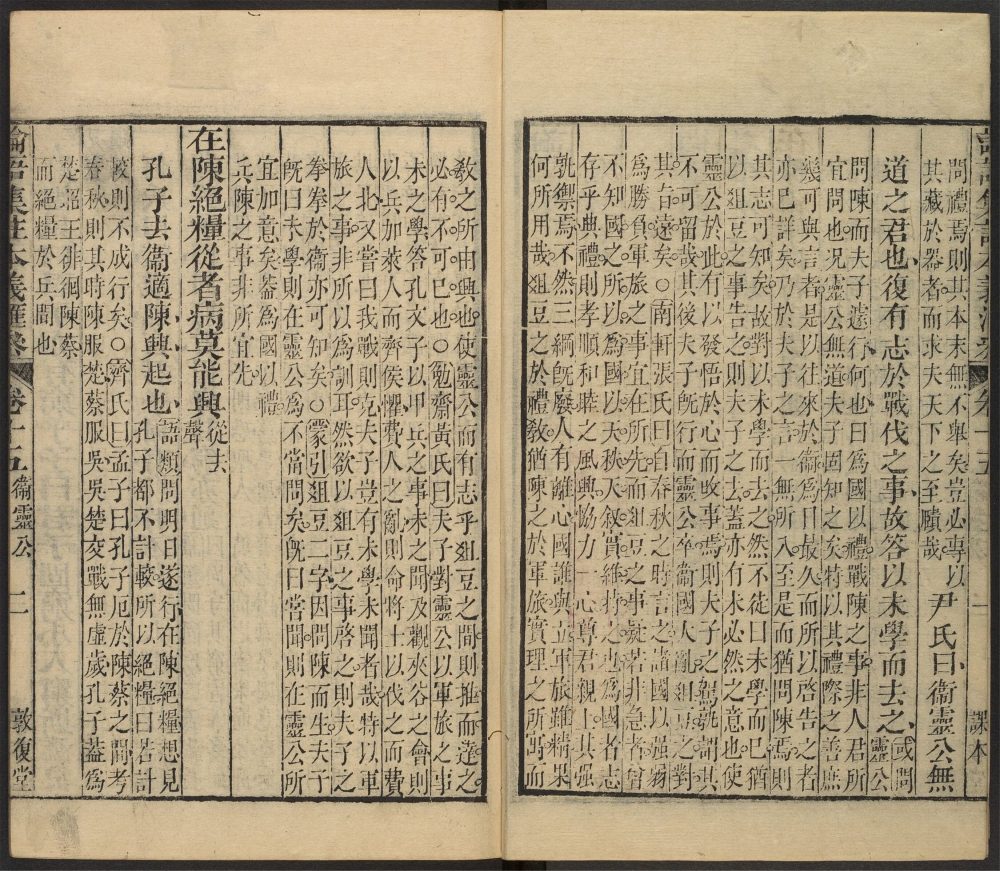 問禮焉則其本末無不舉矣豈必專以
其藏於器者而求夫天下之至賾哉
尹氏曰衞靈公無
道之君也復有志於戰伐之事故答以未學而去之
或問
靈公
問陳而夫子遂行何也曰為國以禮戰陳之事非人君所
宜問也况靈公無道夫子固知之矣特以其禮際之善庶
幾可與言者是以往來於衞為日最久而所以啓告之者
亦已詳矣乃於夫子之言一無所入至是而猶問陳焉則
其志可知矣故對以未學而去之然不徒曰未學而已猶
以俎豆之事告之則夫子之去蓋亦有未必然之意也使
靈公於此有以發悟於心而改事焉則夫子之駕孰謂其
不可留哉其後夫子旣行而靈公卒衞國大亂俎豆之對
其旨遠矣○南軒張氏曰自春秋之時言之諸國以强弱
為勝負軍旅之事宜在所先而俎豆之事疑若非急者
不知國之所以夫天叙天秩實維持之也為國者志
存乎典禮則孝順和睦之風興協力一心尊君親上其强
孰禦焉不然三綱旣廢人有離心國誰與立軍旅雖精果
何所用哉俎豆之於禮敎猶陳之於軍旅實理之所寓而
課本
敎之所由興也使靈公而有志乎俎豆之間則推而達之
必有不可已也○勉齋黃氏曰夫子對靈公以軍旅之事
未之學答孔文子以甲兵之事未之聞及觀夾谷之會則
以兵加萊人而齊侯懼費人之亂則命將士以伐之而費
人北又嘗曰我戰則克夫子豈有未學未聞者哉特以軍
旅之事非所以為訓耳然欲以俎豆之事啓之則夫子之
拳拳於衞亦可知矣○蒙引俎豆二字因問陳而生夫子
旣曰未學則在靈公為不當問矣旣曰嘗聞則在靈公所
宜加意矣蓋為國以禮
兵陳之事非所宜先
在陳絕糧從者病莫能興
從去
聲
孔子去衞適陳興起也
語類問明日遂行在陳絕糧想見
孔子都不計較所以絕糧曰若計
較則不成行矣○齊氏曰孟子曰孔子厄於陳蔡之間考
春秋則其時陳服楚蔡服吳吳楚交戰無虛歲孔子蓋為
楚昭王徘徊陳蔡
而絕糧於兵間也
論語集註本義匯參 卷十五 衞靈公 二 敦復堂